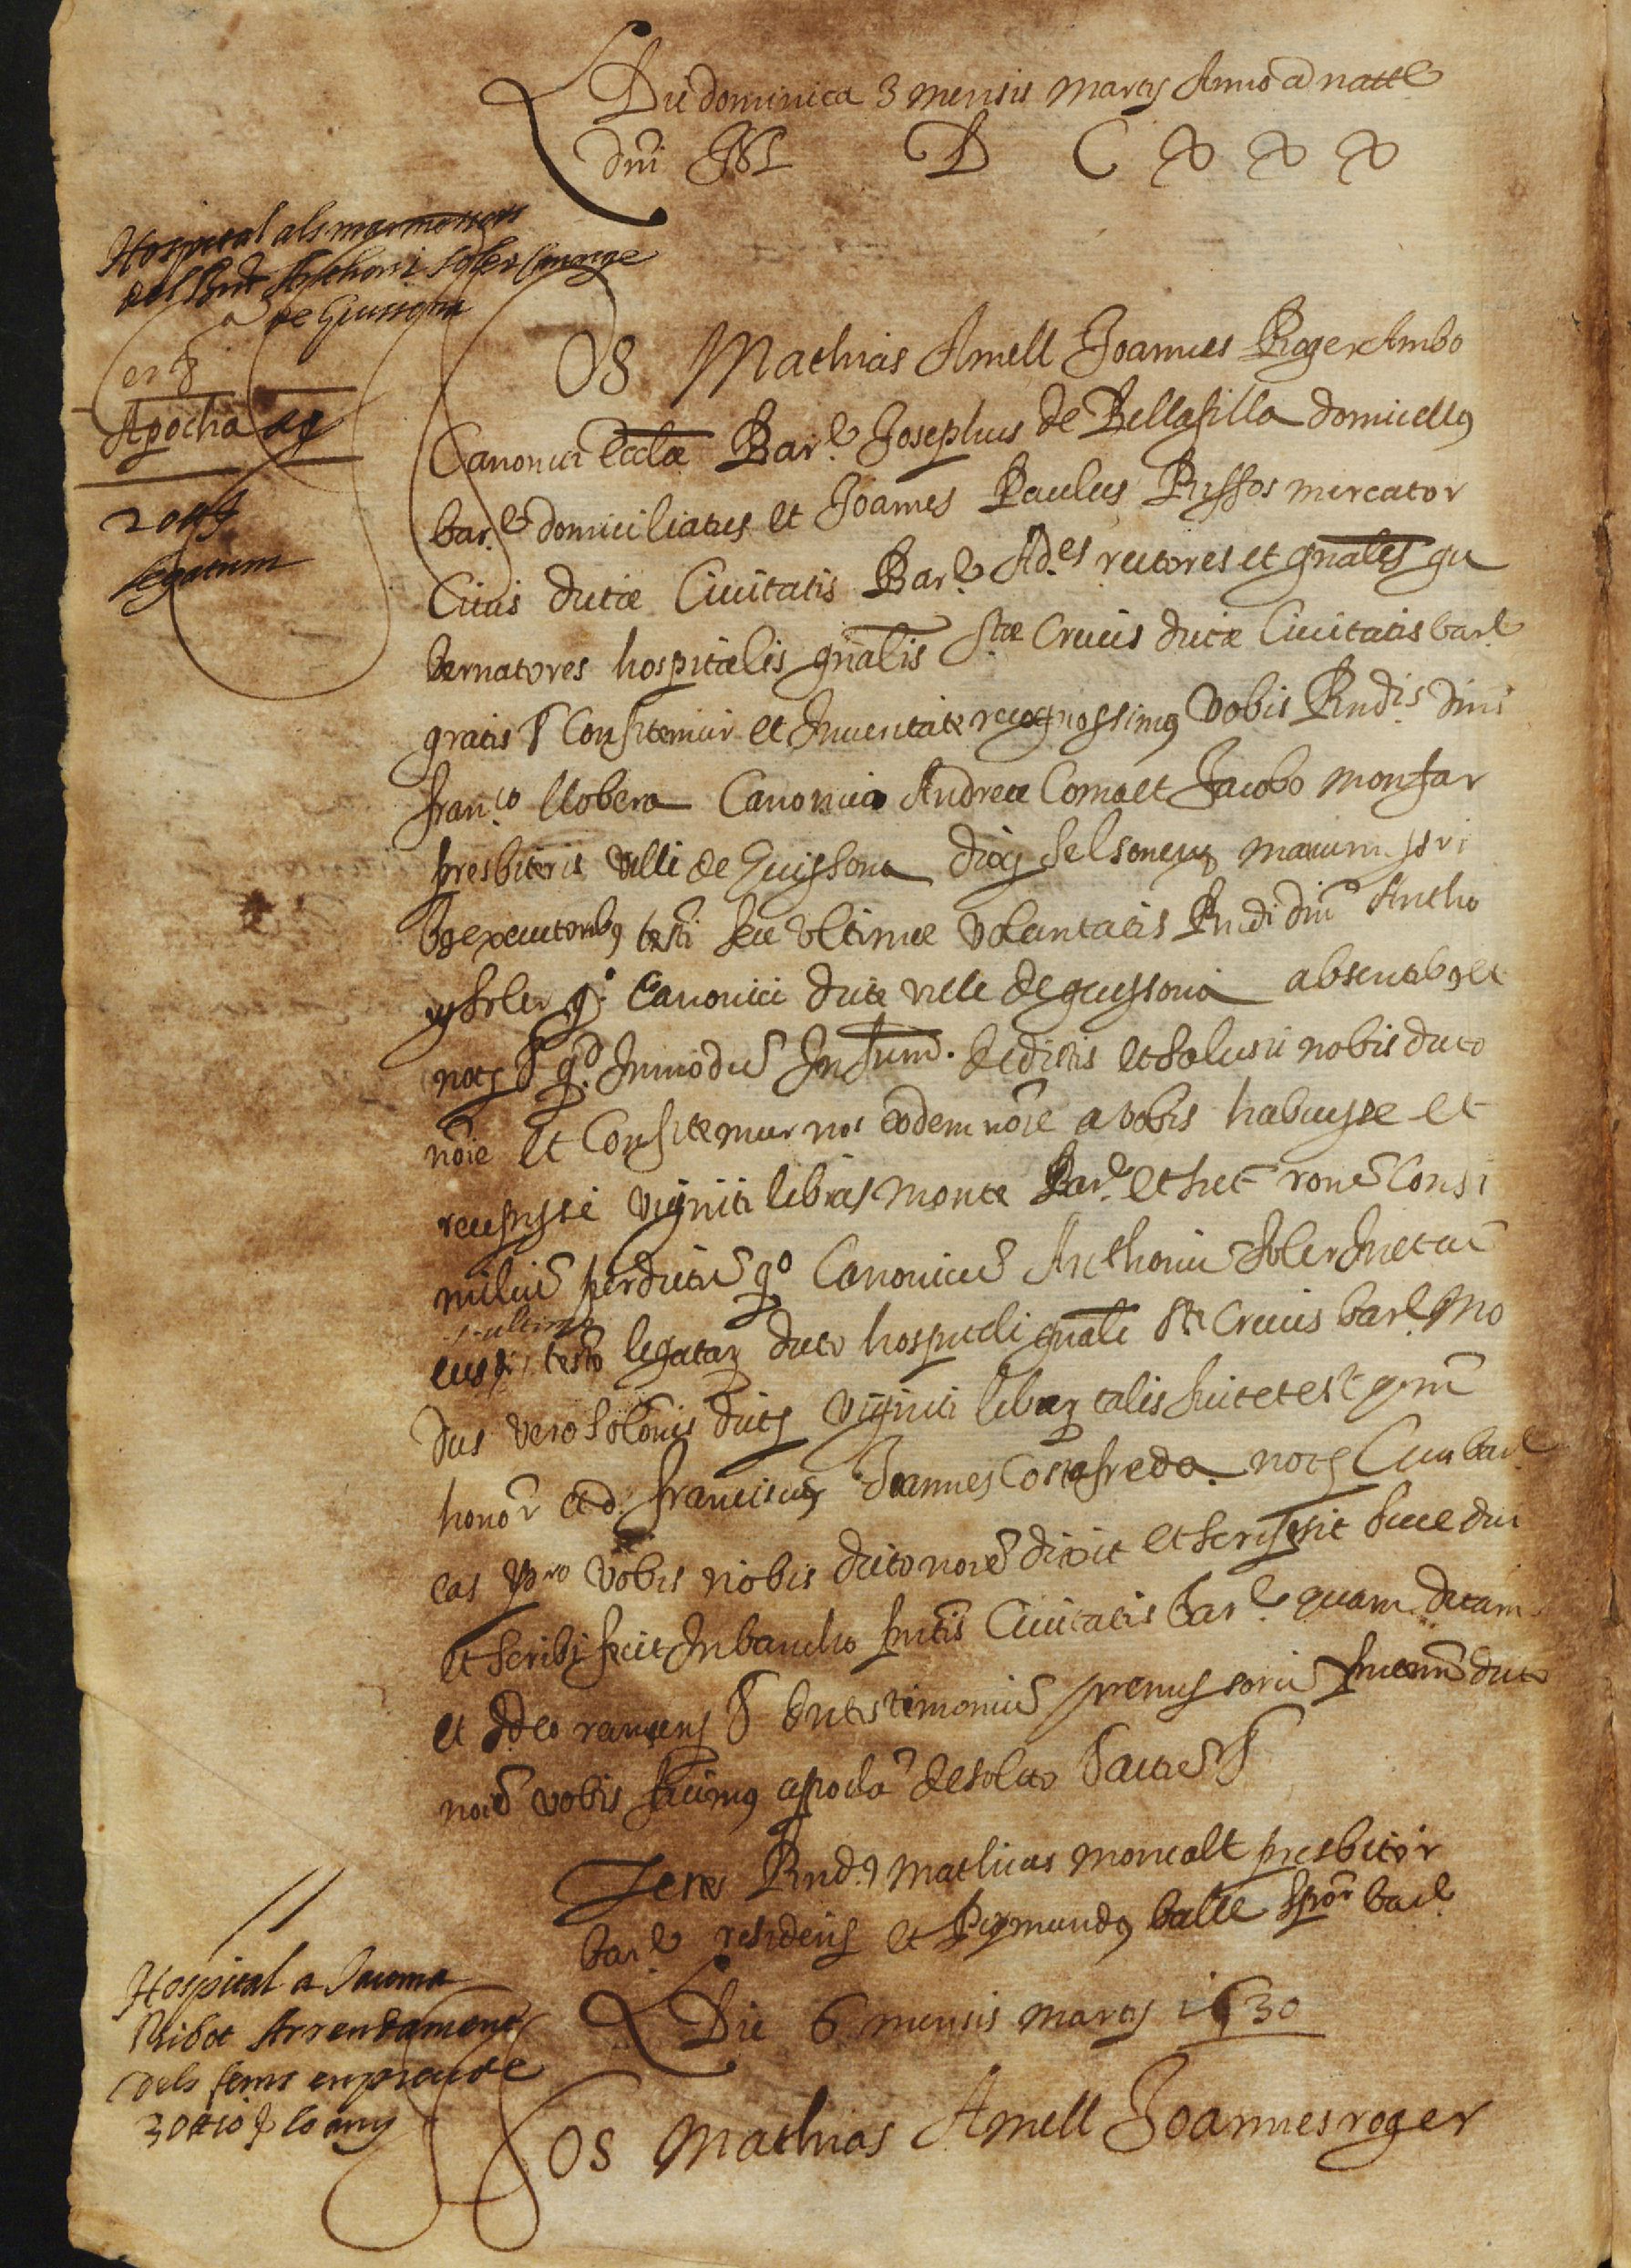 Die dominica 3 mensis martij Anno a natte
dni M D C X X X
Hospital als marmessors
del Rnt Anthoni Soler Canonge
de Guissona
Apocha de
20 ₶
legatum
Os Mathias Amell Joannes Roger Ambo
Canonici Eccla Barl. Josephus de Bellafilla domicellus
barl. domiciliatus et Joannes Paulus Ruffos mercator
Civis dictae Civitatis Barl. Ad.es rectores et gnales gu
bernatores hospitalis gnalis Stae Crucis dictae Civitatis barl.
gratis & Confitemur et Inveritate recognossimus Vobis Rndis. dnis
franco. llobera Canonico Andreae Comalt Jacobo monfar
presbiteris Ville de Guissona Diocs Selsonen manumissori
bus executoribus testi seu Ultimae Voluntatis Rndi dni Antho
nij Soler qo. Canonici dicte ville de guissona absentibus et
notz & qd. Inmodu Infrum. dedistis et solvistis nobis dicto
noie et Confitemur nos eodem noie a vobis habuisse et
recepisse viginti libras monte Barl. et sunt rone Consi
miliu per dictu qo Canonicu Anthoniu Soler Inetcu
ultimo
eius testo legatarz dicto hospitali gnali Ste Crucis barl. Mo
dus vero solonis dictz viginti librarz talis fuit et est qm
honor et d. franciscus Joannes Costafreda notz Civis barl.
eas pro vobis nobis dicto noie dixit et scripsit seu dici
et scribi fecit Inbancho pntis Civitatis barl. quam dictam
et Ideo renuncns & Intestimoniu premissoru
noie vobis facimus apocha de soluto & actu &
Testes Rndus Mathias moncalt presbiter
barl. residens et Raymundus balle spor barl.
Die 6 mensis martij 1630
Hospital a Jauma
Ribot Arrendament
dels fems en preu de
30 ₶ 10 s lo any
Os Mathias Amell Joannes roger